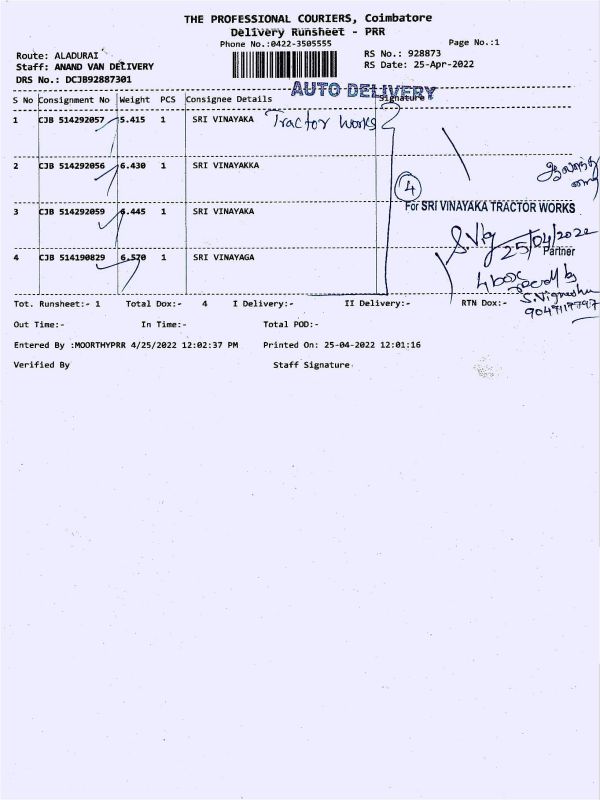 THE PROFESSIONAL COURIERS, Coimbatore
Delivery Runsheet - PRR
Phone No.:0422-3505555
Page No.:1
Route: ALADURAI
RS No.: 928873
Staff: ANAND VAN DELIVERY
RS Date: 25-Apr-2022
DRS No.: DCJB92887301
AUTO DELIVERY
S No Consignment No Weight PCS Consignee Details Signature
1 CJB 514292057 5.415 1 SRI VINAYAKA Tractor Works
2 CJB 514292056 6.430 1 SRI VINAYAKKA
4
3 CJB 514292059 6.445 1 SRI VINAYAKA
For SRI VINAYAKA TRACTOR WORKS
S.Vig
25/04/2022
Partner
4 CJB 514190829 6.570 1 SRI VINAYAGA
4 box
by
S.Vignesh
9047117797
Tot. Runsheet:- 1 Total Dox:- 4 I Delivery:- II Delivery:- RTN Dox:-
Out Time:- In Time:- Total POD:-
Entered By :MOORTHYPRR 4/25/2022 12:02:37 PM Printed On: 25-04-2022 12:01:16
Verified By Staff Signature